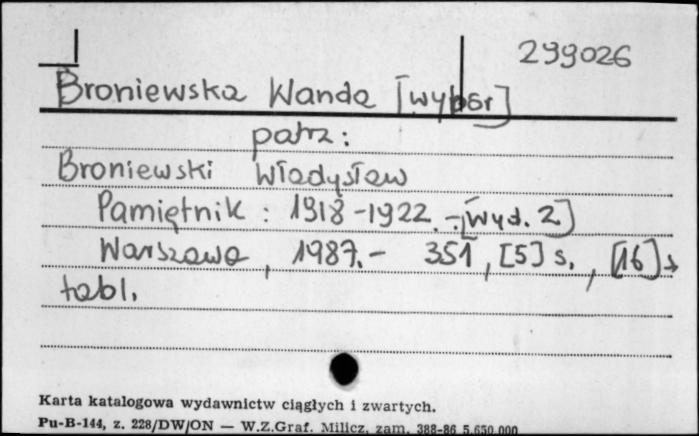 299026
Broniewska Wanda [wybór]
patrz:
Broniewski Władysław
Pamiętnik : 1918-1922. - [Wyd. 2]
Warszawa, 1987. - 351, [5] s., [16] s
tabl.
Karta katalogowa wydawnictw ciągłych i zwartych.
Pu-B-144, z. 228/DW/ON — W.Z.Graf. Milicz, zam. 388-86 5.650.000